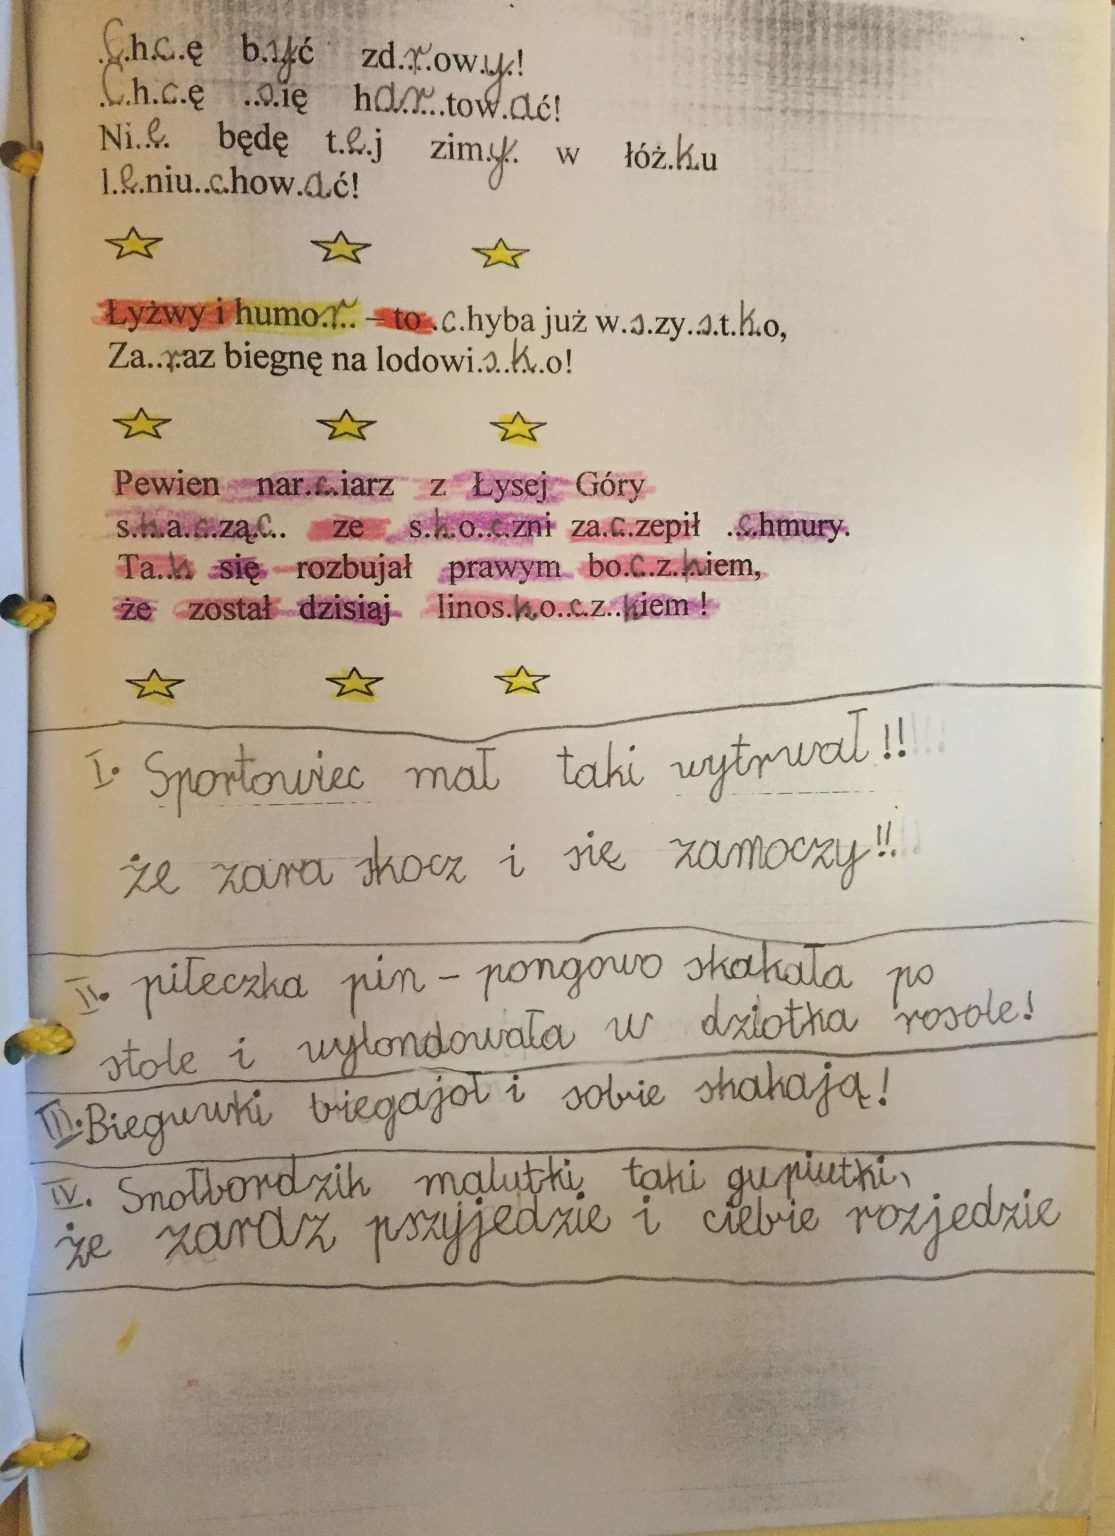 .C.h.c.ę b.y.ć zd.r.ow.y.!
.C.h.c.ę ..s.ię ha.r...tow.a.ć!
Ni.e. będę t.e.j zim.y. w łóż.k.u
l.e.niu..c.how.a.ć!
Łyżwy i humo.r.. – to .c.hyba już w.s.zy..s.t.k.o,
Za..r.az biegnę na lodowi.s..k..o!
Pewien nar..c..iarz z Łysej Góry
s.k.a.c.zą.c.. ze s.k.o..c.zni za.c.zepił .c.hmury.
Ta..k się rozbujał prawym bo.c.z.k.iem,
że został dzisiaj linos.k.o..c.z..k.iem !
I. Sportowiec mał taki wytrwał!!
że zara skocz i się zamoczy!!
II. piłeczka pin - pongowo skakała po
stole i wylondowała w dziotka rosole!
III. Bieguwki biegajoł i sobie skakają!
IV. Snołbordzik malutki taki gupiutki,
że zaraz pszyjedzie i ciebie rozjedzie